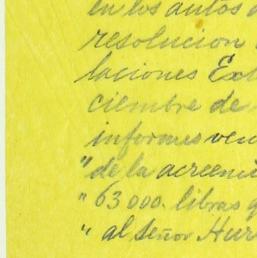 en los autos
resolucion
laciones Ext
ciembre de
informes ven
"de la acreen
"63 000. libras g
"al señor Hur